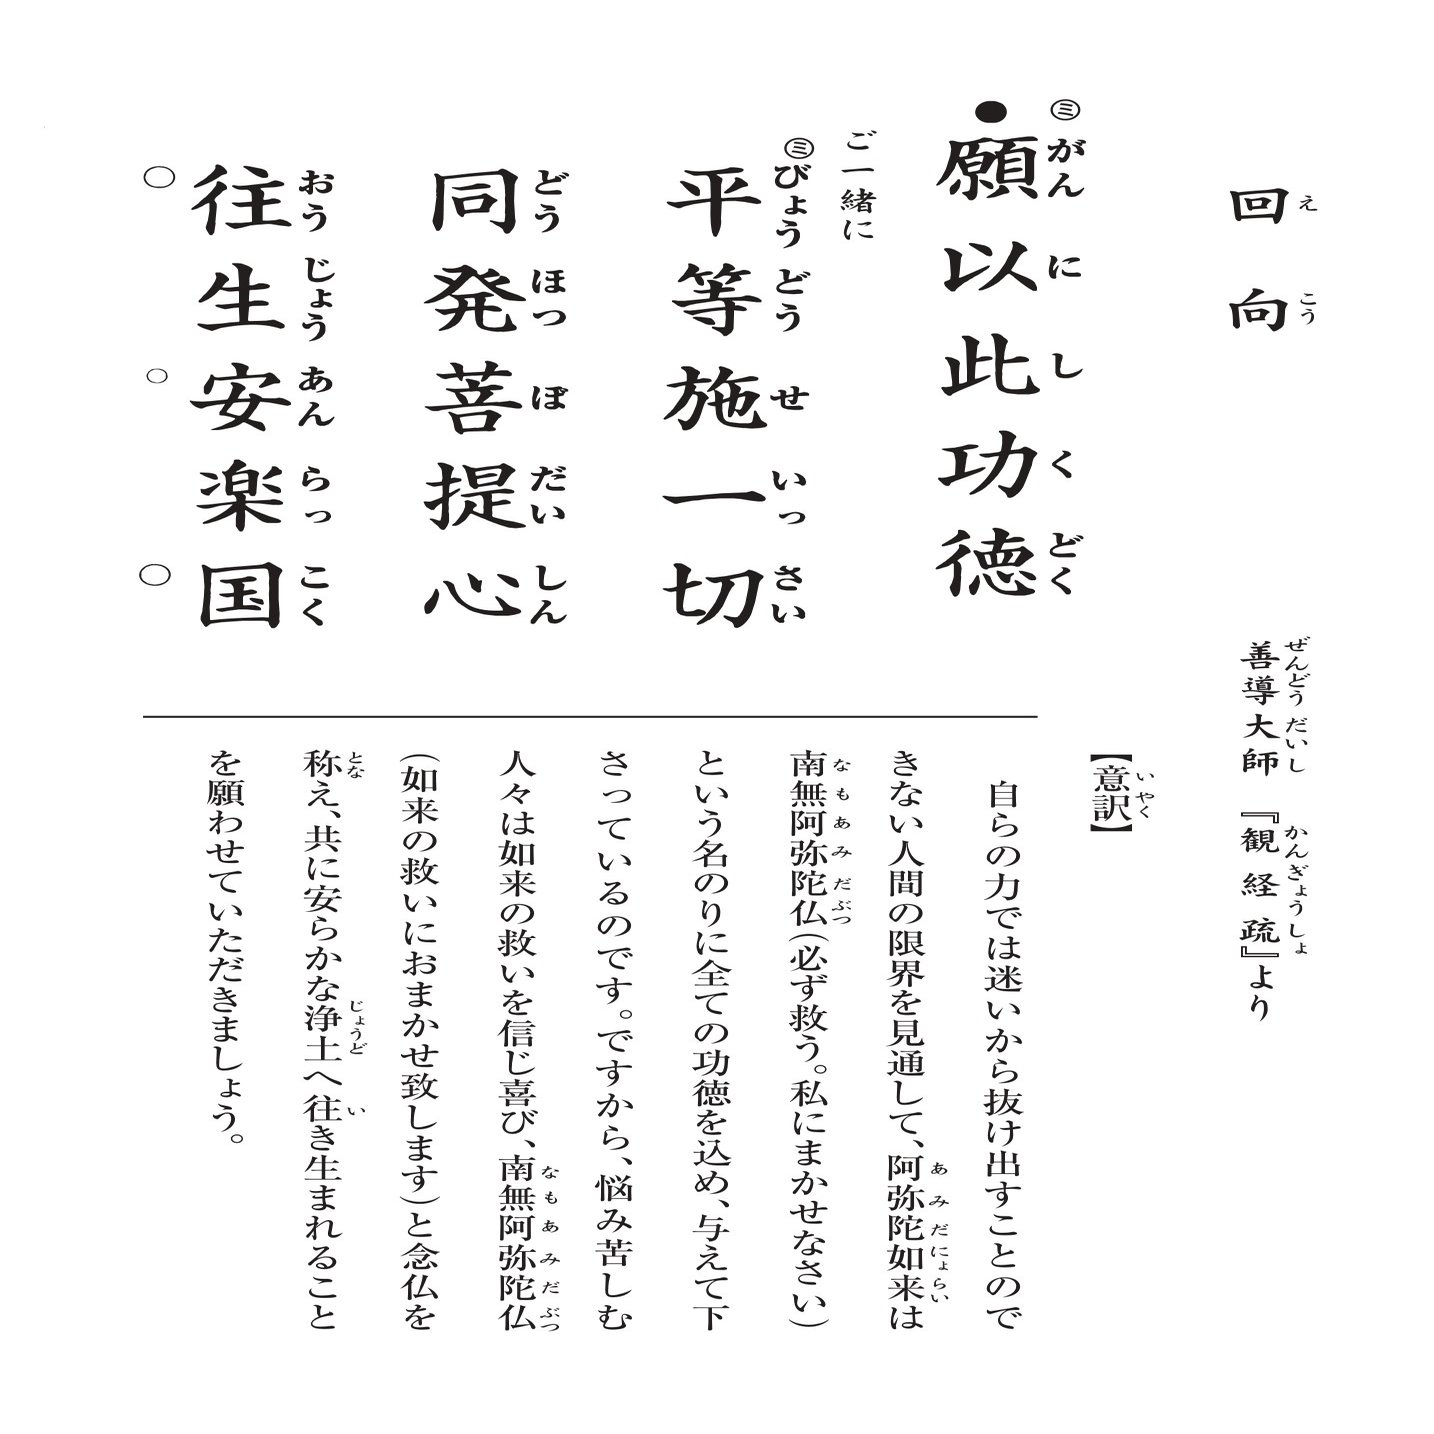 回向
えこう
善導大師『観経疏』より
ぜんどうだいし かんぎょうしょ
㊂がんにしくどく
●願以此功徳
ご一緒に
㊂びょうどうせいっさい
平等施一切
どうほつぼだいしん
同発菩提心
おうじょうあんらっこく
往生安楽国
○ ○ ○
【意訳】
いやく
自らの力では迷いから抜け出すことので
きない人間の限界を見通して、阿弥陀如来は
あみだにょらい
南無阿弥陀仏(必ず救う。私にまかせなさい)
なもあみだぶつ
という名のりに全ての功徳を込め、与えて下
さっているのです。ですから、悩み苦しむ
人々は如来の救いを信じ喜び、南無阿弥陀仏
なもあみだぶつ
(如来の救いにおまかせ致します)と念仏を
称え、共に安らかな浄土へ往き生まれること
とな じょうど い
を願わせていただきましょう。